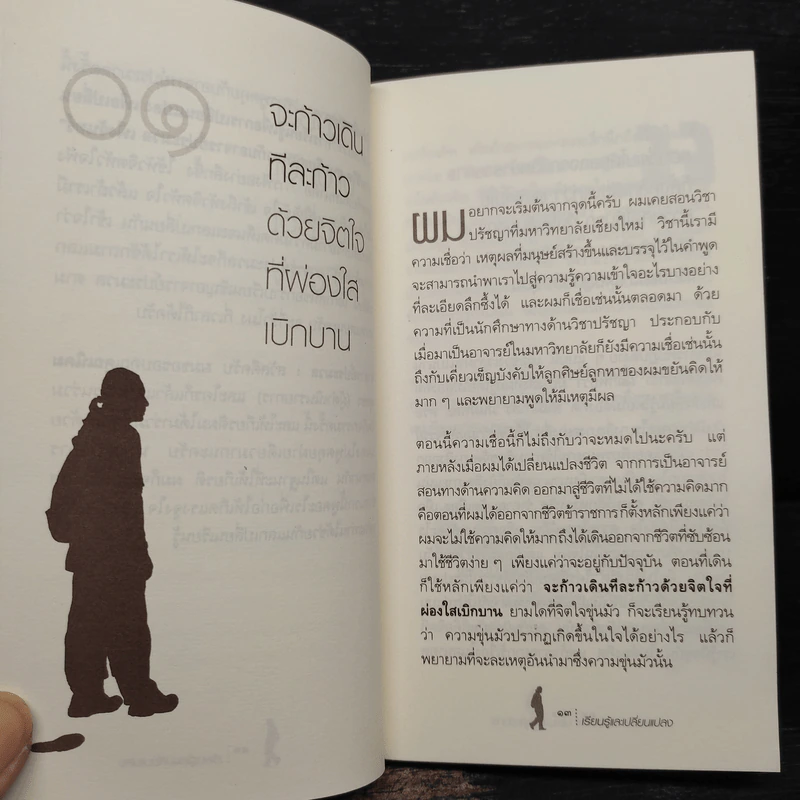 ๐๑
จะก้าวเดิน
ทีละก้าว
ด้วยจิตใจ
ที่ผ่องใส
เบิกบาน
ผมอยากจะเริ่มต้นจากจุดนี้ครับ ผมเคยสอนวิชา
ปรัชญาที่มหาวิทยาลัยเชียงใหม่ วิชานี้เรามี
ความเชื่อว่า เหตุผลที่มนุษย์สร้างขึ้นและบรรจุไว้ในคำพูด
จะสามารถนำพาเราไปสู่ความรู้ความเข้าใจอะไรบางอย่าง
ที่ละเอียดลึกซึ้งได้ และผมก็เชื่อเช่นนั้นตลอดมา ด้วย
ความที่เป็นนักศึกษาทางด้านวิชาปรัชญา ประกอบกับ
เมื่อมาเป็นอาจารย์ในมหาวิทยาลัยก็ยังมีความเชื่อเช่นนั้น
ถึงกับเคี่ยวเข็ญบังคับให้ลูกศิษย์ลูกหาของผมขยันคิดให้
มาก ๆ และพยายามพูดให้มีเหตุมีผล
ตอนนี้ความเชื่อนี้ก็ไม่ถึงกับว่าจะหมดไปนะครับ แต่
ภายหลังเมื่อผมได้เปลี่ยนแปลงชีวิต จากการเป็นอาจารย์
สอนทางด้านความคิด ออกมาสู่ชีวิตที่ไม่ได้ใช้ความคิดมาก
คือตอนที่ผมได้ออกจากชีวิตข้าราชการก็ตั้งหลักเพียงแค่ว่า
ผมจะไม่ใช้ความคิดให้มากถึงได้เดินออกจากชีวิตที่ซับซ้อน
มาใช้ชีวิตง่าย ๆ เพียงแค่ว่าจะอยู่กับปัจจุบัน ตอนที่เดิน
ก็ใช้หลักเพียงแค่ว่า จะก้าวเดินทีละก้าวด้วยจิตใจที่
ผ่องใสเบิกบาน ยามใดที่จิตใจขุ่นมัว ก็จะเรียนรู้ทบทวน
ว่า ความขุ่นมัวปรากฏเกิดขึ้นในใจได้อย่างไร แล้วก็
พยายามที่จะละเหตุอันนำมาซึ่งความขุ่นมัวนั้น
๑๓ เรียนรู้และเปลี่ยนแปลง